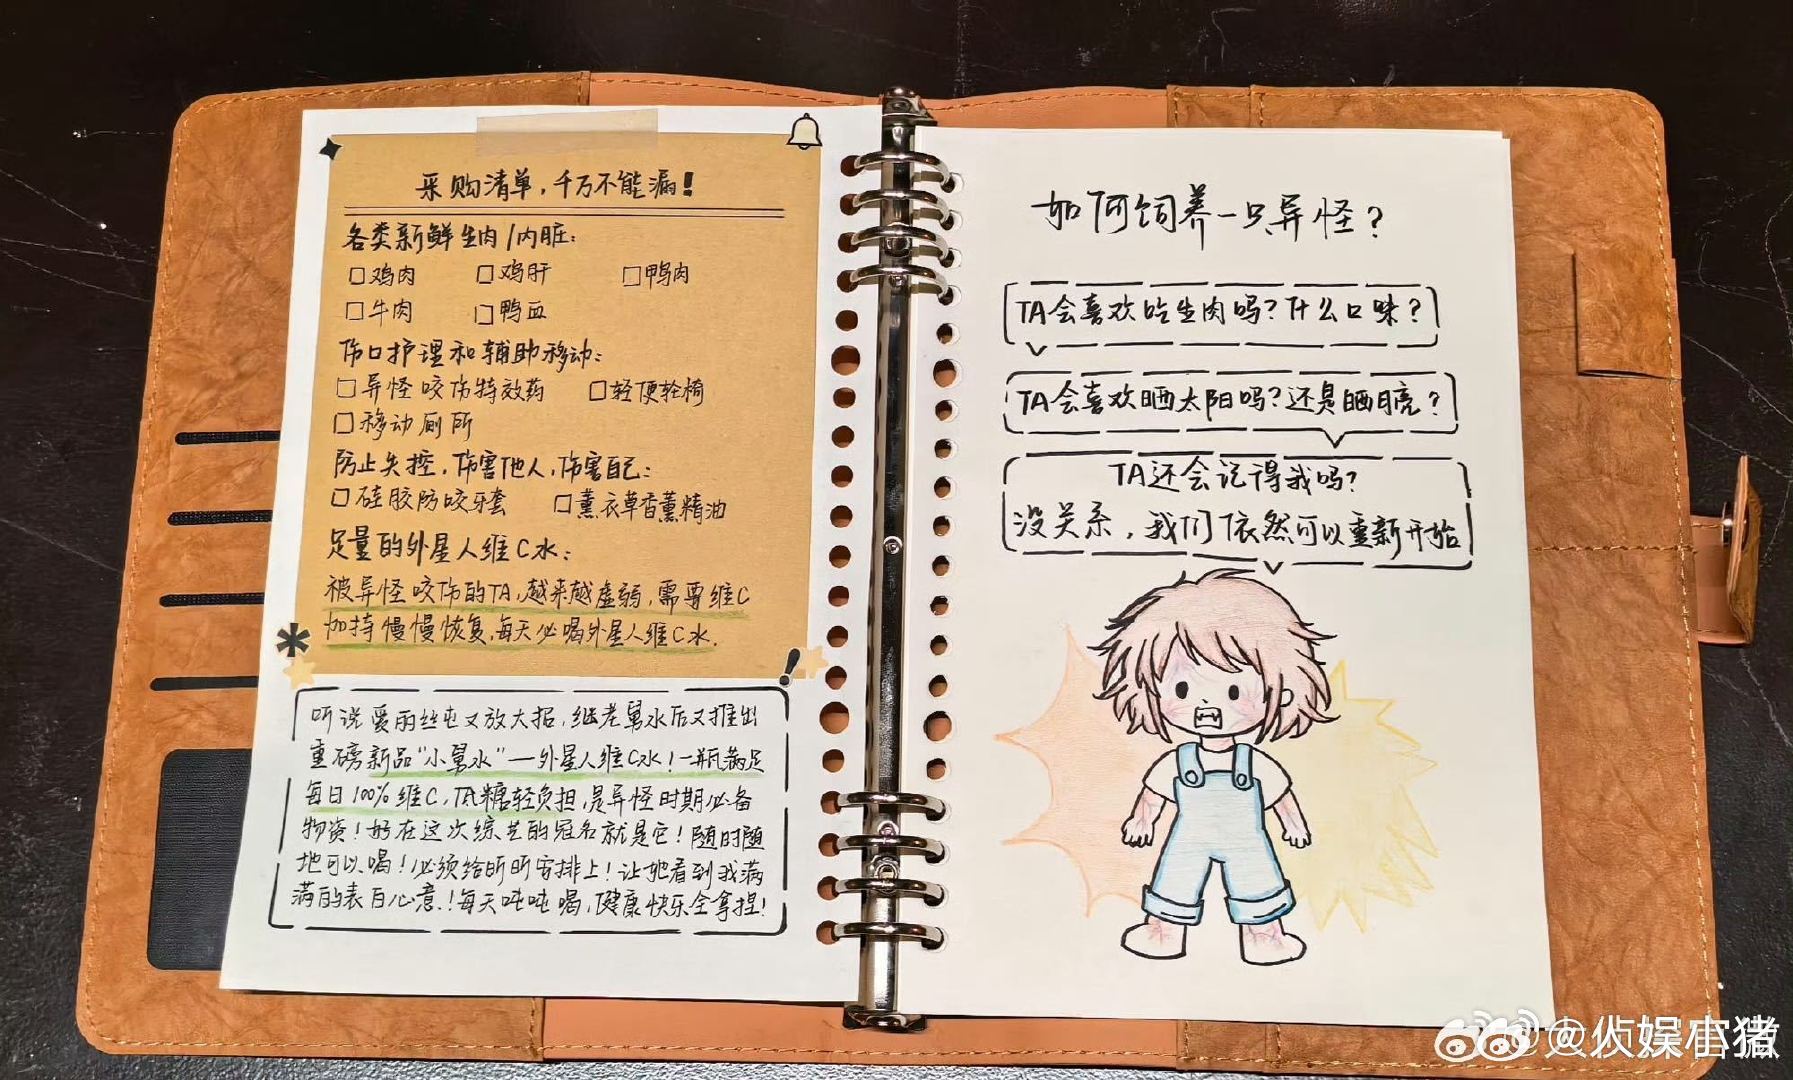 采购清单，千万不能漏！
各类新鲜生肉/内脏：
□鸡肉 □鸡肝 □鸭肉
□牛肉 □鸭血
伤口护理和辅助移动：
□异怪咬伤特效药 □轻便轮椅
□移动厕所
防止失控，伤害他人，伤害自己：
□硅胶防咬牙套 □薰衣草香薰精油
足量的外星人维C水：
被异怪咬伤的TA，越来越虚弱，需要维C
加持慢慢恢复，每天必喝外星人维C水．
听说爱丽丝屯又放大招，继老舅水后又推出
重磅新品“小舅水”—外星人维C水！一瓶满足
每日100%维C，低糖轻负担，是异怪时期必备
物资！好在这次综艺的冠名就是它！随时随
地可以喝！必须给昕昕安排上！让她看到我满
满的表白心意！每天吨吨喝，健康快乐全拿捏！
如何饲养一只异怪？
TA会喜欢吃生肉吗？什么口味？
TA会喜欢晒太阳吗？还是晒月亮？
TA还会记得我吗？
没关系，我们依然可以重新开始